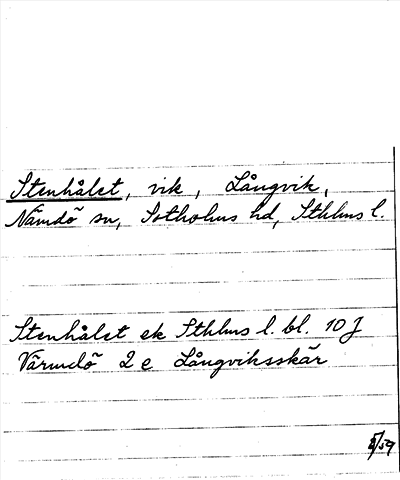 Stenhålet, vik, Långvik,
Nämdö sn, Sotholms hd, Sthlms l.
Stenhålet ek Sthlms l. bl. 10 J
Värmdö 2 e Långviksskär
8/59